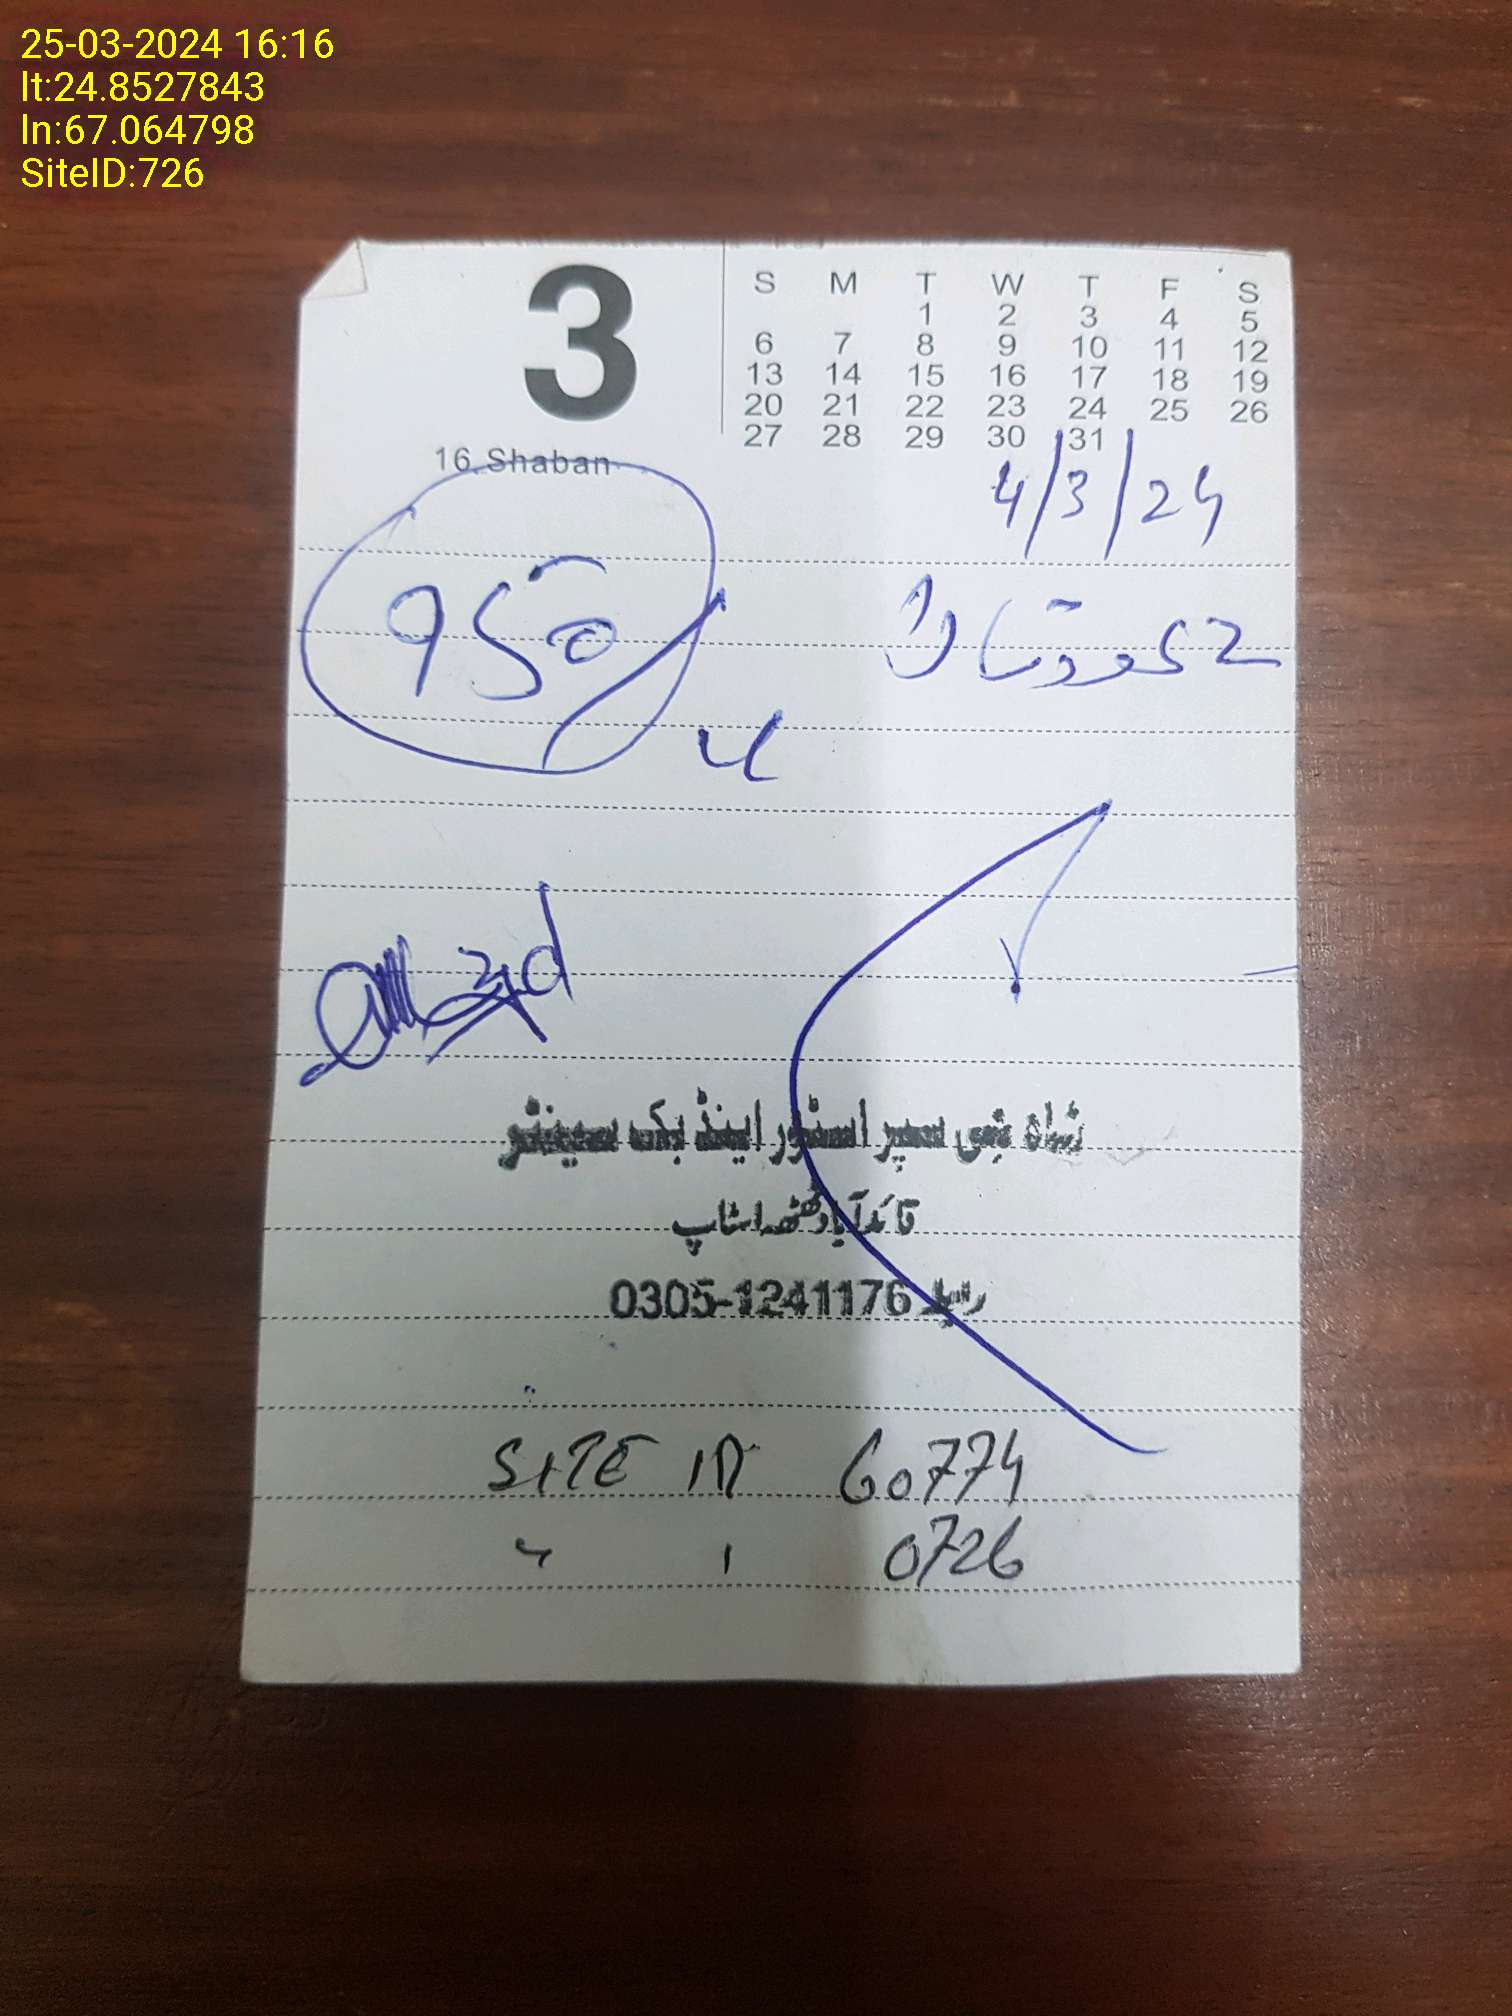 25-03-2024 16:16
lt:24.8527843
ln:67.064798
SiteID:726
3
S M T W T F S
1 2 3 4 5
6 7 8 9 10 11 12
13 14 15 16 17 18 19
20 21 22 23 24 25 26
27 28 29 30 31
16 Shaban
4/3/24
950
شاہ جی سپر اسٹور اینڈ بک سینٹر
قائدآباد ٹھٹھہ اسٹاپ
0305-1241176
SITE ID 60774
0726